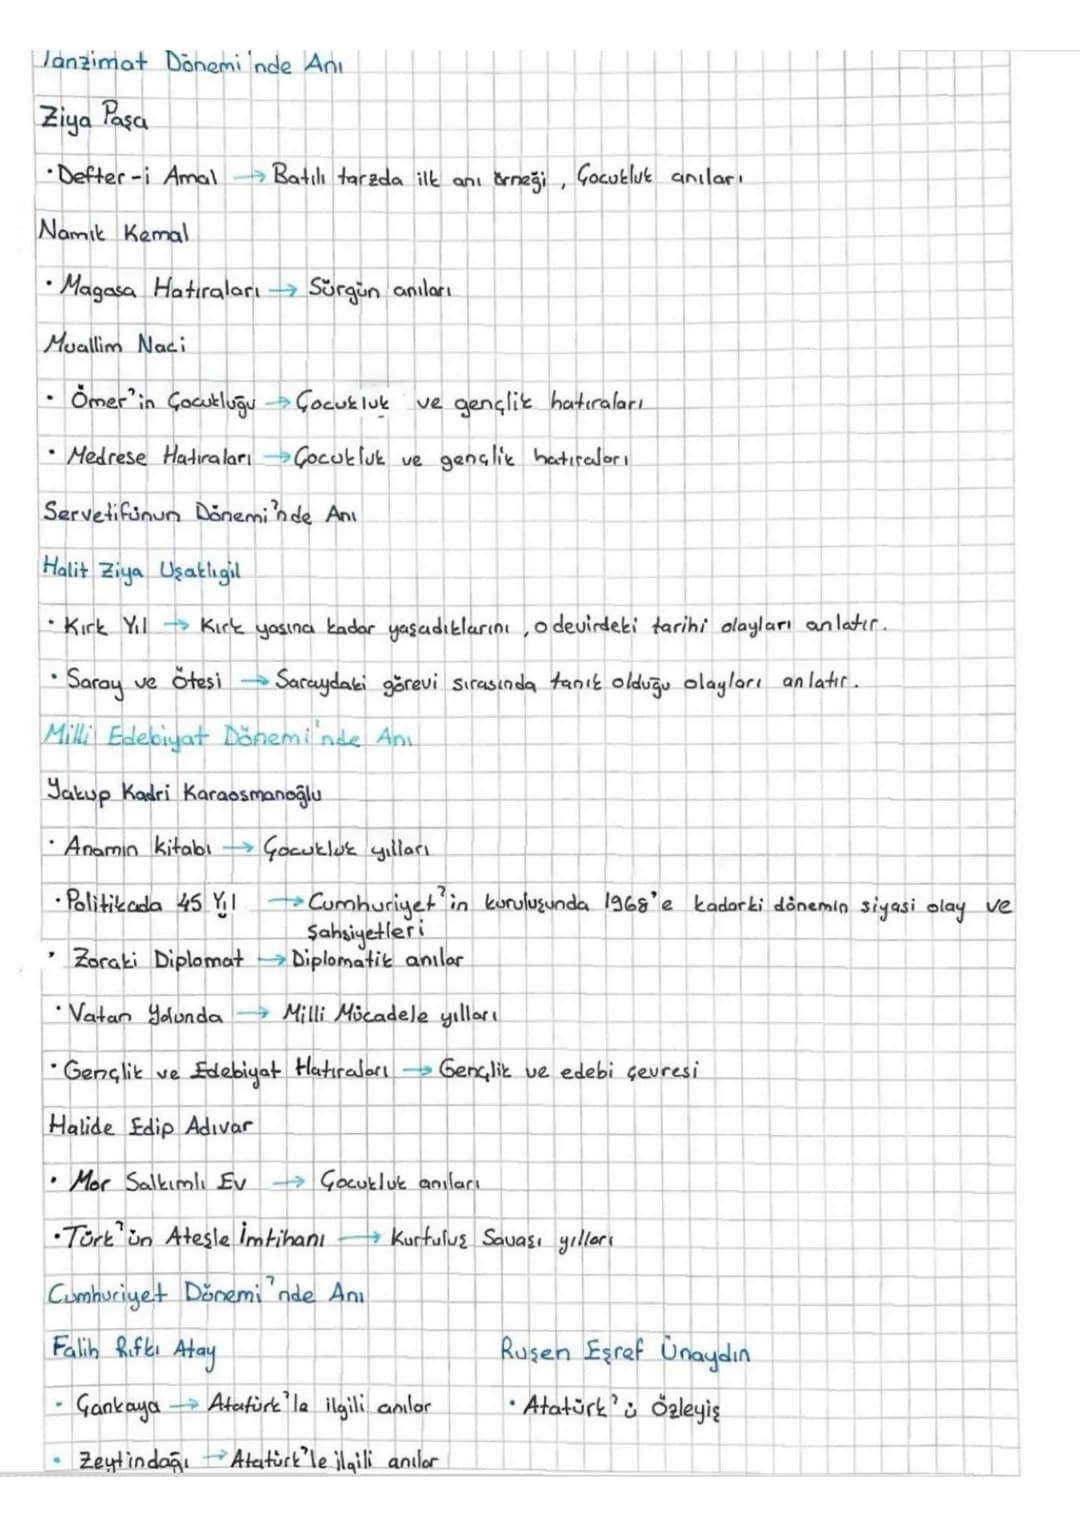 Tanzimat Dönemi'nde Anı
Ziya Paşa
• Defter-i Amal → Batılı tarzda ilk anı örneği, Çocukluk anıları
Namık Kemal
• Magosa Hatıraları → Sürgün anıları
Muallim Naci
• Ömer'in Çocukluğu → Çocukluk ve gençlik hatıraları
• Medrese Hatıraları → Çocukluk ve gençlik hatıraları
Servetifünun Dönemi'nde Anı
Halit Ziya Uşaklıgil
• Kırk Yıl → Kırk yaşına kadar yaşadıklarını, o devirdeki tarihi olayları anlatır.
• Saray ve Ötesi → Saraydaki görevi sırasında tanık olduğu olayları anlatır.
Milli Edebiyat Dönemi'nde Anı
Yakup Kadri Karaosmanoğlu
• Anamın kitabı → Çocukluk yılları
• Politikada 45 Yıl → Cumhuriyet'in kuruluşunda 1968'e kadarki dönemin siyasi olay ve
şahsiyetleri
• Zoraki Diplomat → Diplomatik anılar
• Vatan Yolunda → Milli Mücadele yılları
• Gençlik ve Edebiyat Hatıraları → Gençlik ve edebi çevresi
Halide Edip Adıvar
• Mor Salkımlı Ev → Çocukluk anıları
• Türk'ün Ateşle İmtihanı → Kurtuluş Savaşı yılları
Cumhuriyet Dönemi'nde Anı
Falih Rıfkı Atay
• Çankaya → Atatürk'le ilgili anılar
• Zeytindağı → Atatürk'le ilgili anılar
Ruşen Eşref Ünaydın
• Atatürk'ü Özleyiş